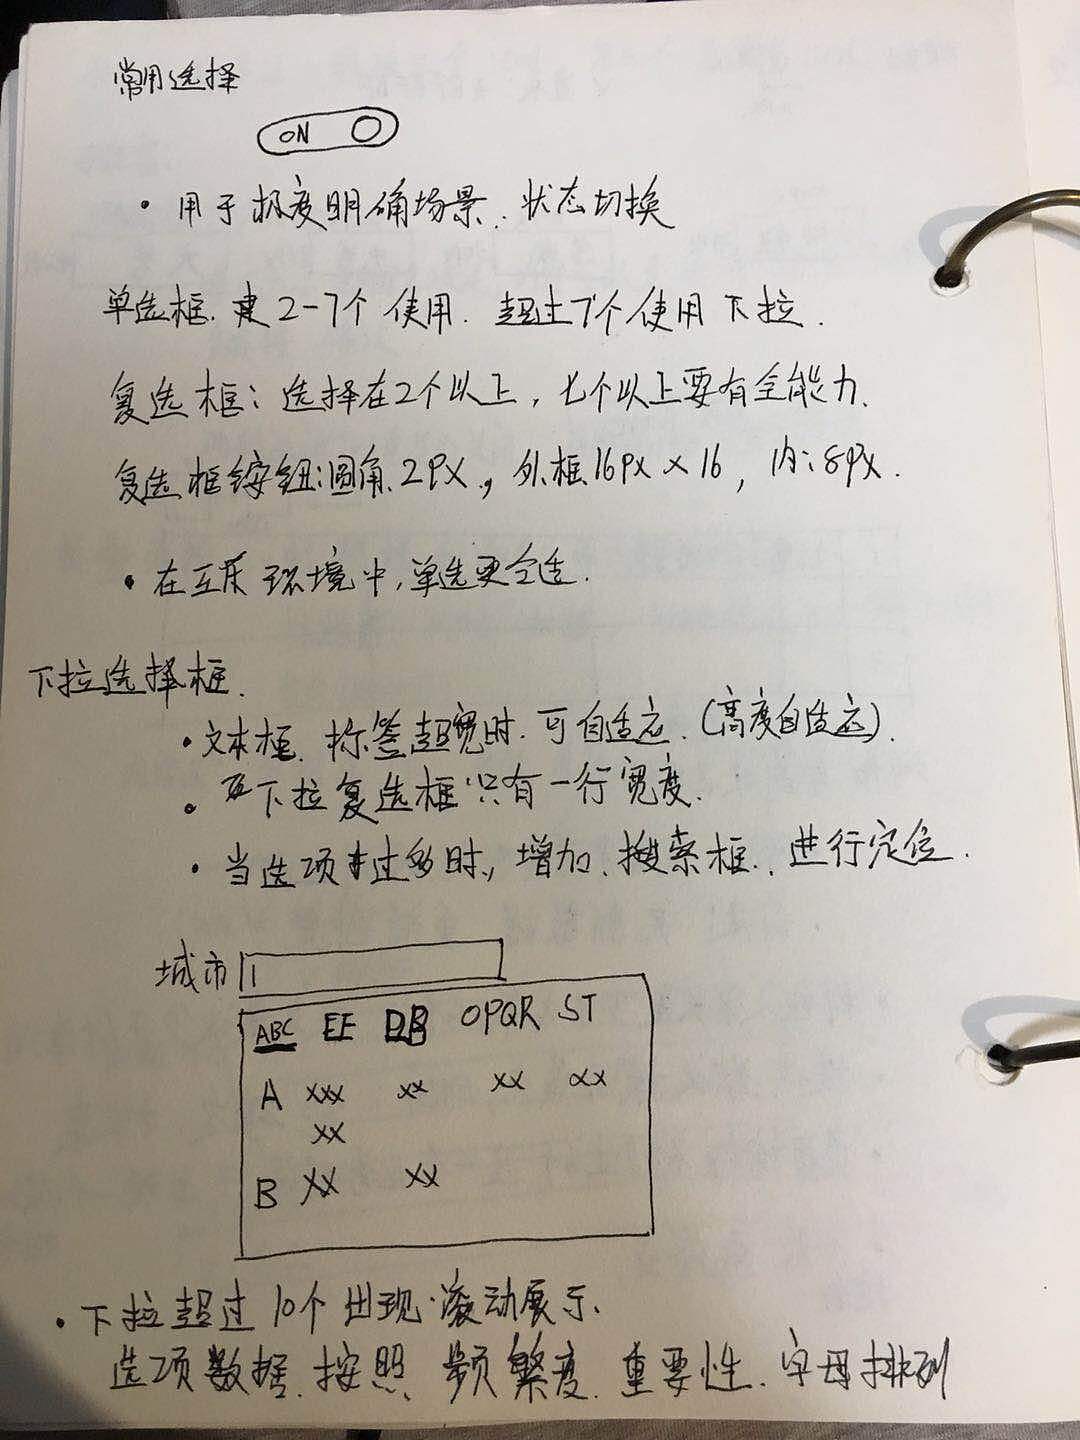 常用选择
ON
· 用于极度明确场景、状态切换
单选框、建2-7个使用. 超过7个使用下拉.
复选框: 选择在2个以上, 七个以上要有全能力.
复选框按钮: 圆角2px, 外框16px×16, 内: 8px.
· 在互斥环境中, 单选更合适.
下拉选择框.
· 文本框、标签超宽时. 可自适应. (高度自适应).
· 下拉复选框只有一行宽度.
· 当选项过多时, 增加、搜索框, 进行定位.
城市
ABC EF OPQR ST
A xxx xx xx xx
xx
B xx xx
· 下拉超过10个出现·滚动展示.
选项数据. 按照 频繁度. 重要性. 字母排列